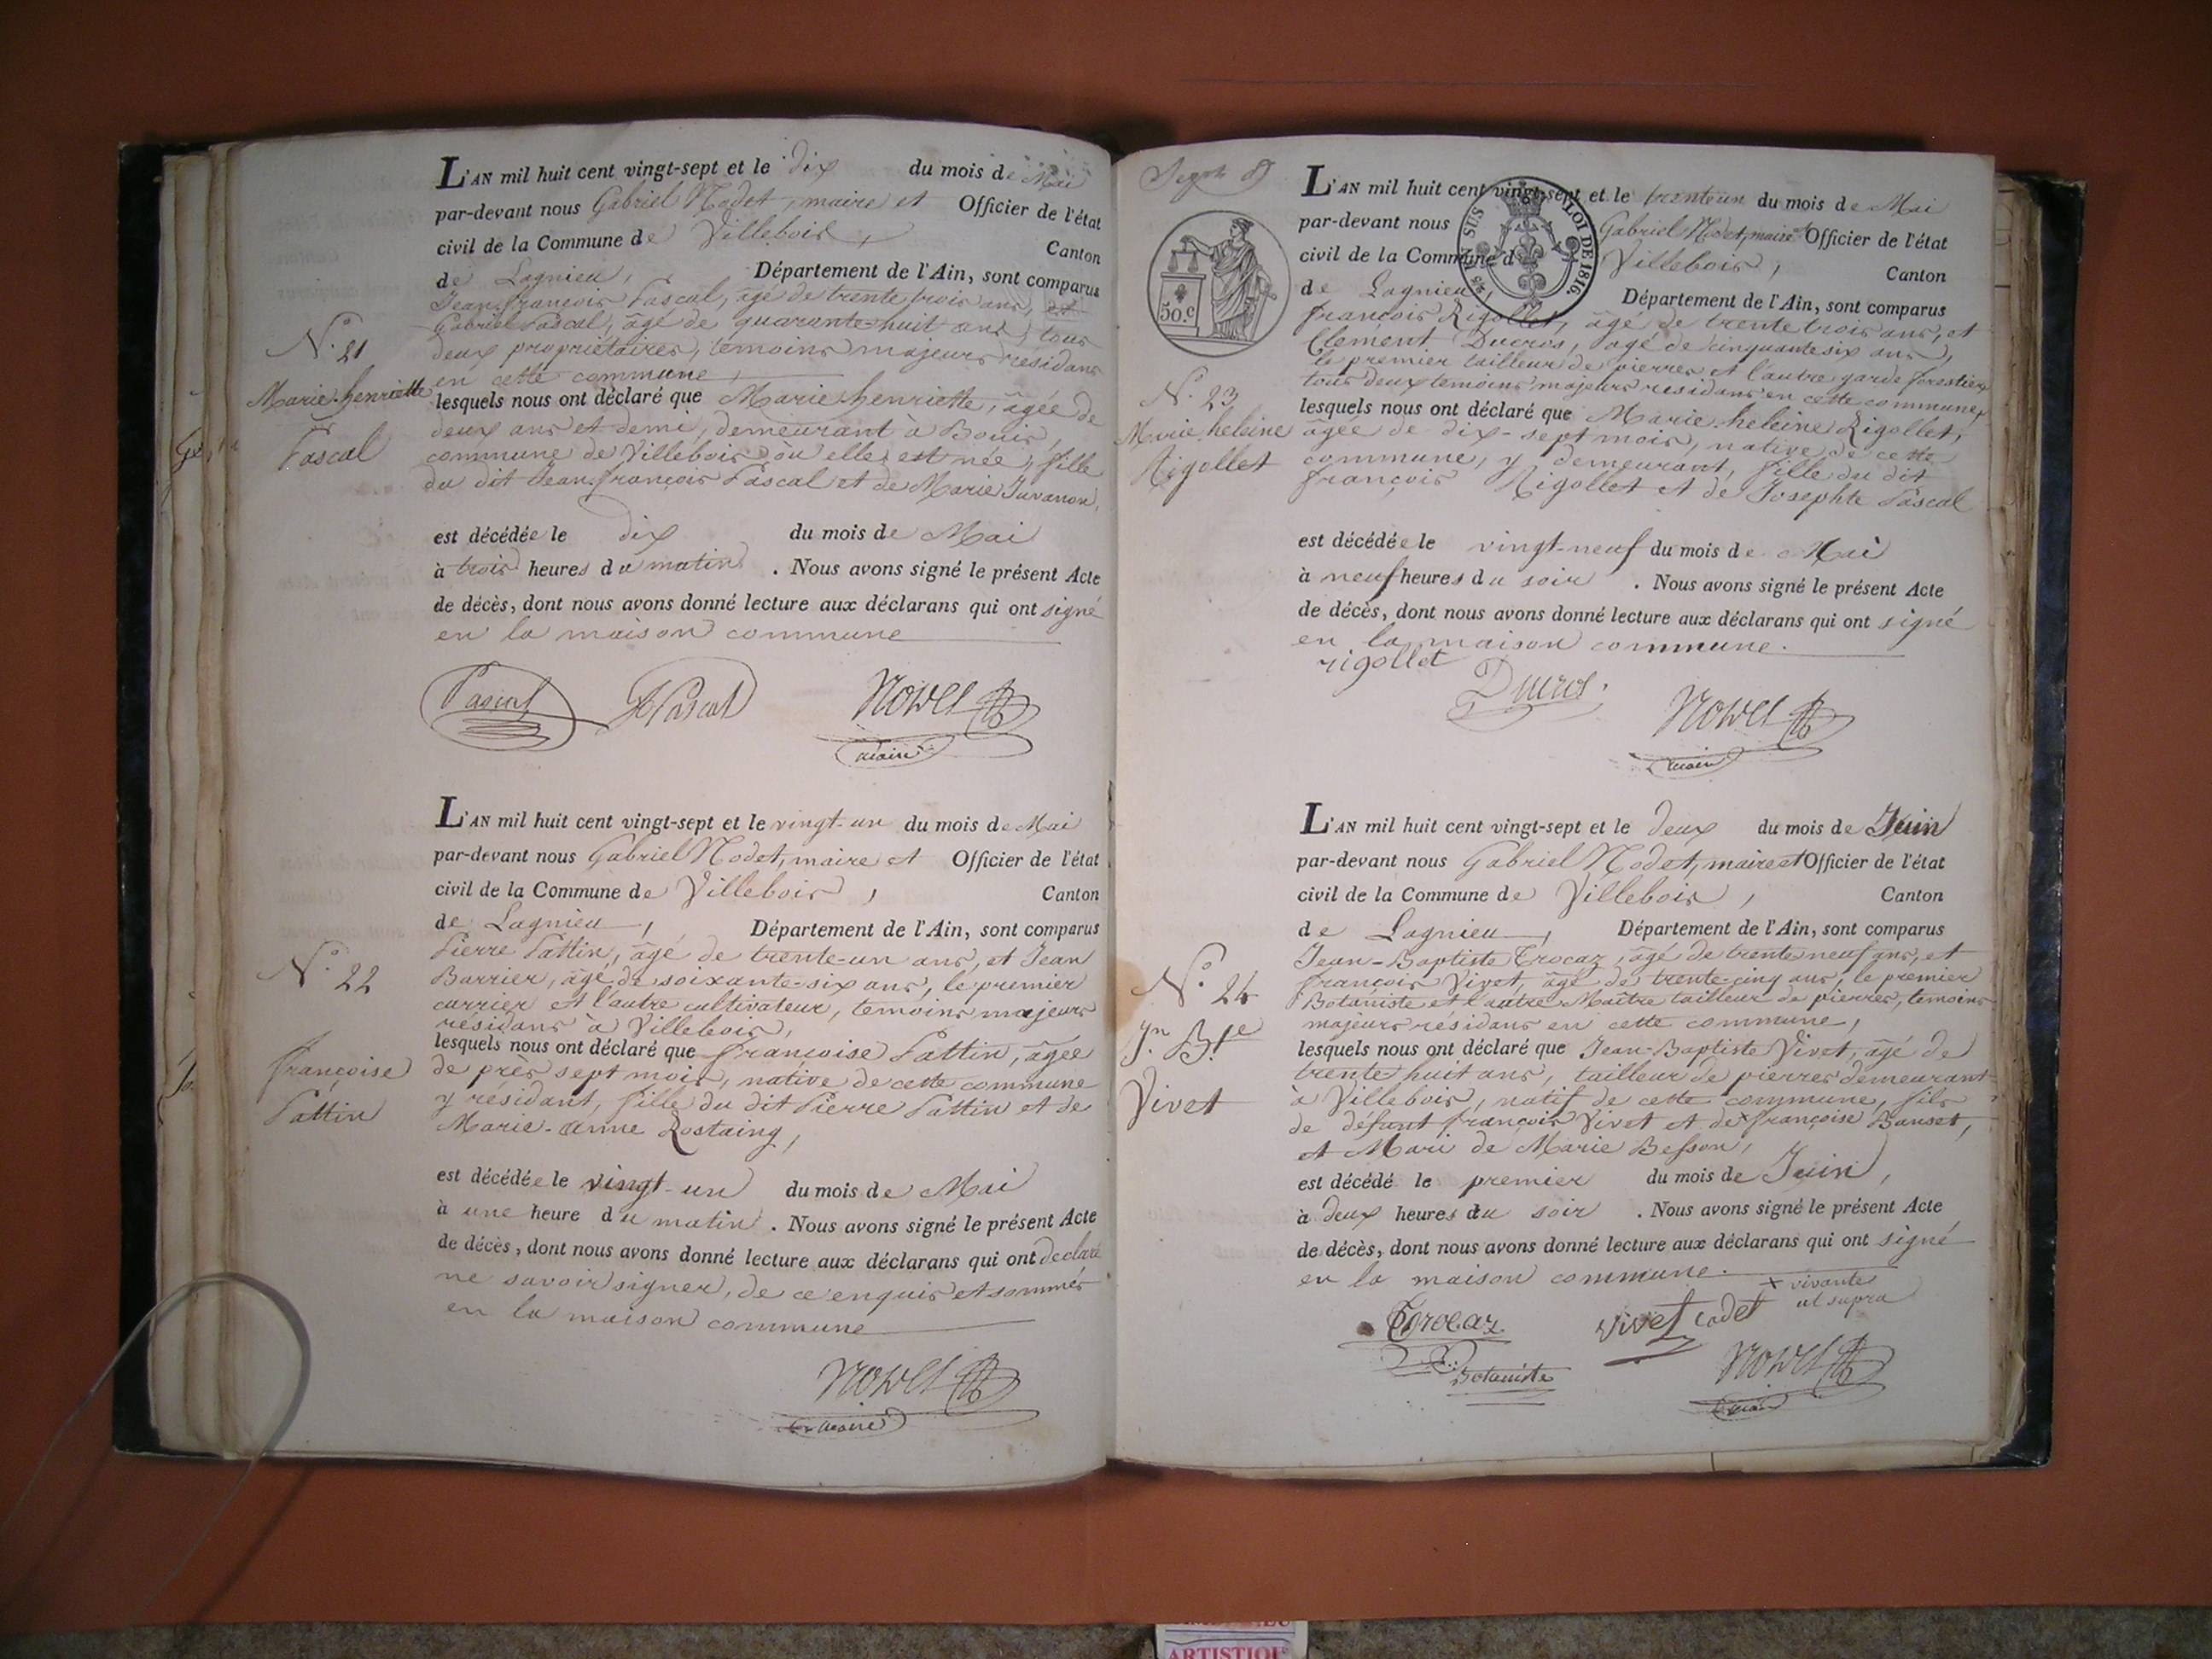 L'AN mil huit cent vingt-sept et le dix du mois de Mai
par-devant nous Gabriel Nodet, maire et Officier de l'état
civil de la Commune de Villebois, Canton
de Lagnieu, Département de l'Ain, sont comparus
Jean-françois Pascal, âgé de trente trois ans, et
Gabriel Pascal, âgé de quarante-huit ans, tous
deux propriétaires, témoins majeurs residans
en cette commune,
N.º 21
Marie-henriette
Pascal
lesquels nous ont déclaré que Marie henriette, âgée de
deux ans et demi, demeurant à Bouis,
commune de Villebois où elle est née, fille
du dit Jean-françois Pascal et de Marie Juvanon,
est décédée le dix du mois de Mai
à trois heures du matin. Nous avons signé le présent Acte
de décès, dont nous avons donné lecture aux déclarans qui ont signé
en la maison commune
Pascal Pascal Nodet
maire
L'AN mil huit cent vingt-sept et le vingt-un du mois de Mai
par-devant nous Gabriel Nodet, maire et Officier de l'état
civil de la Commune de Villebois, Canton
de Lagnieu, Département de l'Ain, sont comparus
Pierre Pattin, âgé de trente-un ans, et Jean
Barrier, âgé de soixante-six ans, le premier
carrier et l'autre cultivateur, temoins majeurs
résidans à Villebois,
N.º 22
françoise
Pattin
lesquels nous ont déclaré que françoise Pattin, âgée
de près sept mois, native de cette commune
y résidant, fille du dit Pierre Pattin et de
Marie-anne Rostaing,
est décédée le vingt-un du mois de Mai
à une heure du matin. Nous avons signé le présent Acte
de décès, dont nous avons donné lecture aux déclarans qui ont declaré
ne savoir signer, de ce enquis et sommés
en la maison commune
Nodet
maire
50.c
SUS
LOI DE 1816.
L'AN mil huit cent vingt-sept et le trente un du mois de Mai
par-devant nous Gabriel Nodet, maire et Officier de l'état
civil de la Commune d Villebois, Canton
de Lagnieu, Département de l'Ain, sont comparus
françois Rigollet, âgé de trente trois ans, et
Clément Ducros, âgé de cinquante six ans,
le premier tailleur de pierres et l'autre garde forestier
tous deux temoins majeurs residans en cette commune,
N.º 23
Marie-heleine
Rigollet
lesquels nous ont déclaré que Marie-heleine Rigollet,
âgée de dix-sept mois, native de cette
commune, y demeurant, fille du dit
françois Rigollet et de Josephte Pascal
est décédée le vingt-neuf du mois de Mai
à neuf heures du soir. Nous avons signé le présent Acte
de décès, dont nous avons donné lecture aux déclarans qui ont signé
en la maison commune.
rigollet
Ducros Nodet
maire
L'AN mil huit cent vingt-sept et le deux du mois de Juin
par-devant nous Gabriel Nodet, maire et Officier de l'état
civil de la Commune de Villebois, Canton
de Lagnieu, Département de l'Ain, sont comparus
Jean-Baptiste Trocaz, âgé de trente neuf ans, et
françois Vivet, âgé de trente-cinq ans, le premier
Botaniste et l'autre Maître tailleur de pierres, temoins
majeurs résidans en cette commune,
N.º 24
Jn. Bte
Vivet
lesquels nous ont déclaré que Jean-Baptiste Vivet, âgé de
trente huit ans, tailleur de pierres demeurant
à Villebois, natif de cette commune, fils
de défunt françois Vivet et de x françoise Banset,
et Mari de Marie Besson,
est décédé le premier du mois de Juin,
à deux heures du soir. Nous avons signé le présent Acte
de décès, dont nous avons donné lecture aux déclarans qui ont signé
en la maison commune.
x vivante
ut supra
Trocaz Vivet Cadet
Botaniste Nodet
maire
ARTISTIQ